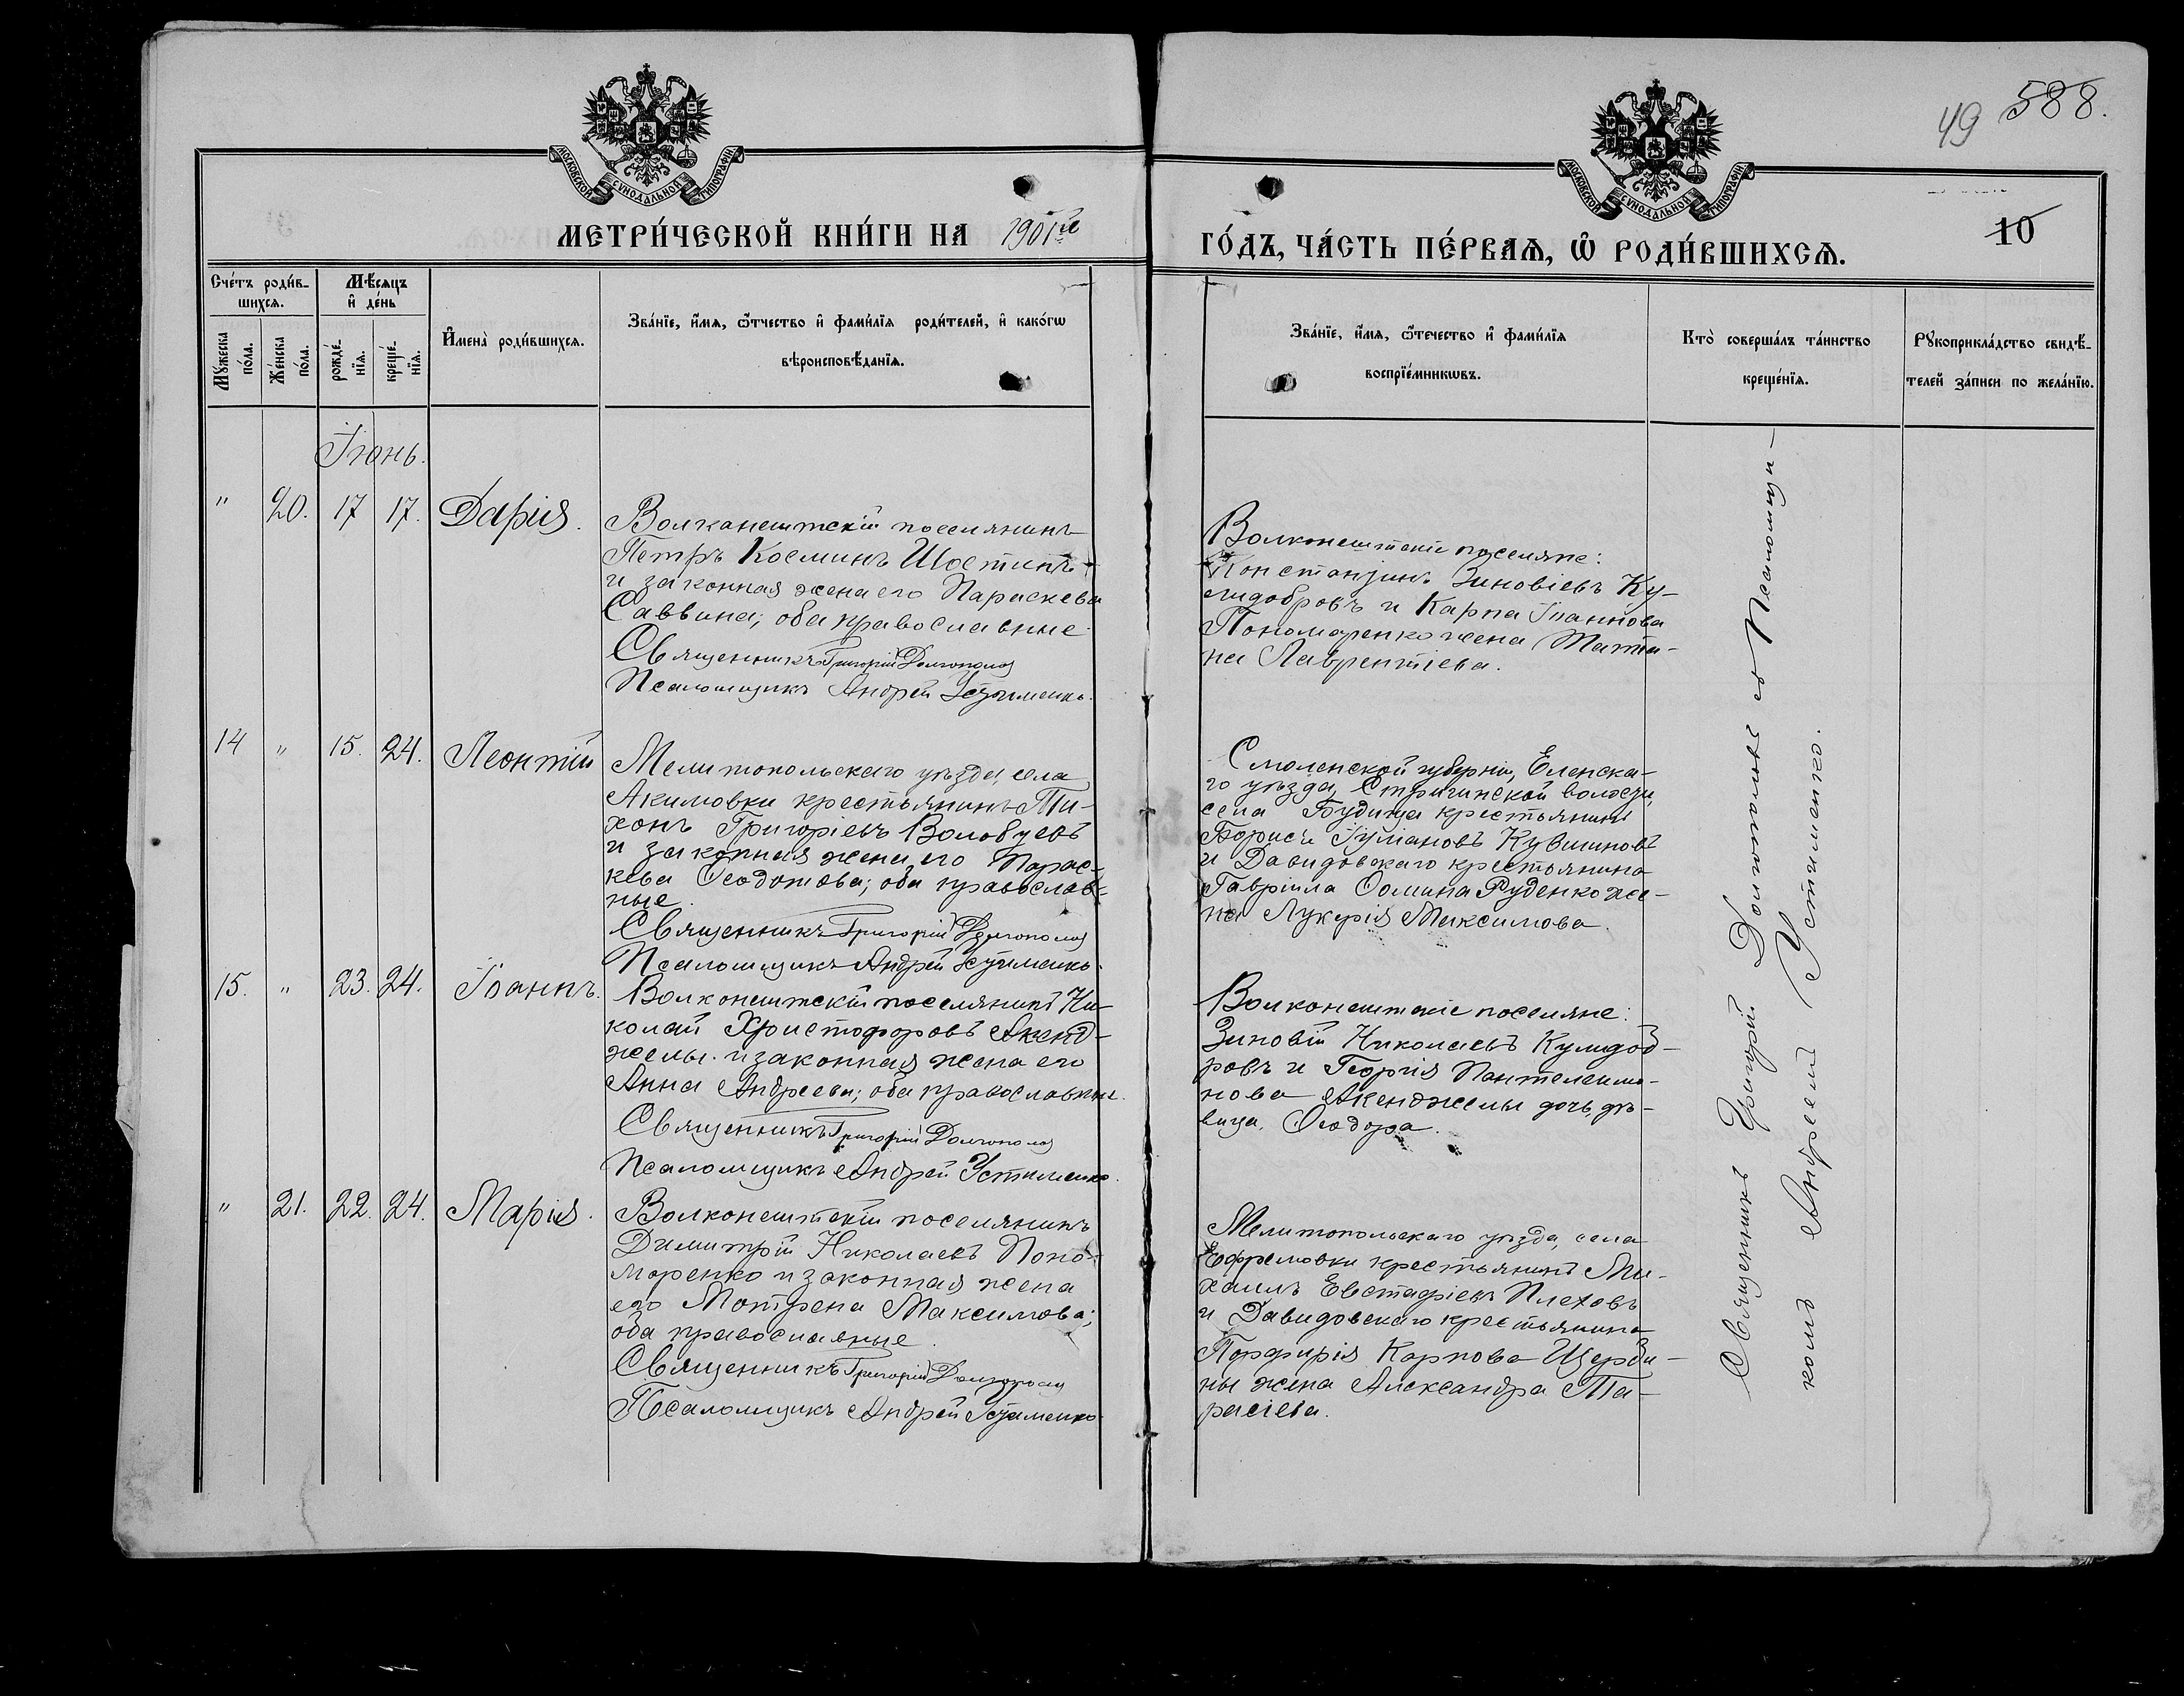 49 588.
МОСКОВСКОЙ СѴНОДАЛЬНОЙ ТИПОГРАФІИ.
МОСКОВСКОЙ СѴНОДАЛЬНОЙ ТИПОГРАФІИ.
МЕТРИ́ЧЕСКОЙ КНИ́ГИ НА 1901й
ГО́ДЪ, ЧА́СТЬ ПЕ́РВАѦ, Ѡ РОДИ́ВШИХСѦ.
10
Сче́тъ роди́в-
шихсѧ.
Мꙋ́жеска
по́ла.
Же́нска
по́ла.
Мѣ́сѧцъ
и҆ де́нь
рожде́-
нїѧ.
креще́-
нїѧ.
И҆мена̀ роди́вшихсѧ.
Зва́нїе, и҆́мѧ, ѻ҆́тчество и҆ фами́лїѧ роди́телей, и҆ како́гѡ
вѣроисповѣ́данїѧ.
Зва́нїе, и҆́мѧ, ѻ҆́течество и҆ фами́лїѧ
воспрїе́мникѡвъ.
Кто̀ соверша́лъ та́инство
креще́нїѧ.
Рꙋкоприкла́дство свидѣ́-
телей за́писи по жела́нїю.
Іюнь.
" 20. 17 17. Дарія.
Волканештскій поселянинъ
Петръ Косминъ Шостинъ
и законная жена его Параскева
Саввина; оба православные
Священникъ Григорій Долгополовъ
Псаломщикъ Андрей Устименко.
Волконештскіе поселяне:
Константинъ Зиновіевъ Ку-
лидобровъ и Карпа Іоаннова
Пономаренко жена Татіа-
на Лаврентіева.
14 " 15. 24. Леонтій
Мелитопольскаго уѣзда, села
Акимовки крестьянинъ Ти-
хонъ Григоріевъ Воловуевъ
и законная жена его Парас-
кева Ѳеодотова; оба православ-
ные.
Священникъ Григорій Долгополовъ
Псаломщикъ Андрей Устименко.
Смоленской губерніи, Еленска-
го уѣзда, Стригинской волости,
села Будища крестьянинъ
Борисъ Іуліановъ Кувшиновъ
и Давидовскаго крестьянина
Гавріила Ѳомина Руденко же-
на Лукерія Максимова.
15. " 23. 24. Іоаннъ.
Волконештскій поселянинъ Ни-
колай Христофоровъ Акенд-
желы и законная жена его
Анна Андреева; оба православны.
Священникъ Григорій Долгополовъ
Псаломщикъ Андрей Устименко.
Волконештскіе поселяне:
Зиновій Николаевъ Кулидоб-
ровъ и Георгія Пантелеимо-
нова Акенджелы дочь, дѣ-
вица, Ѳеодора.
" 21. 22. 24. Марія.
Волконештскій поселянинъ
Димитрій Николаевъ Поно-
маренко и законная жена
его Мотрена Максимова;
оба православные.
Священникъ Григорій Долгополовъ
Псаломщикъ Андрей Устименко.
Мелитопольскаго уѣзда, села
Ефремовки крестьянинъ Ми-
хаилъ Евстафіевъ Плеховъ
и Давидовскаго крестьянина
Порфирія Карпова Щерби-
ны жена Александра Та-
расіева.
Священникъ Григорій Долгополовъ съ Псаломщи-
комъ Андреемъ Устименко.